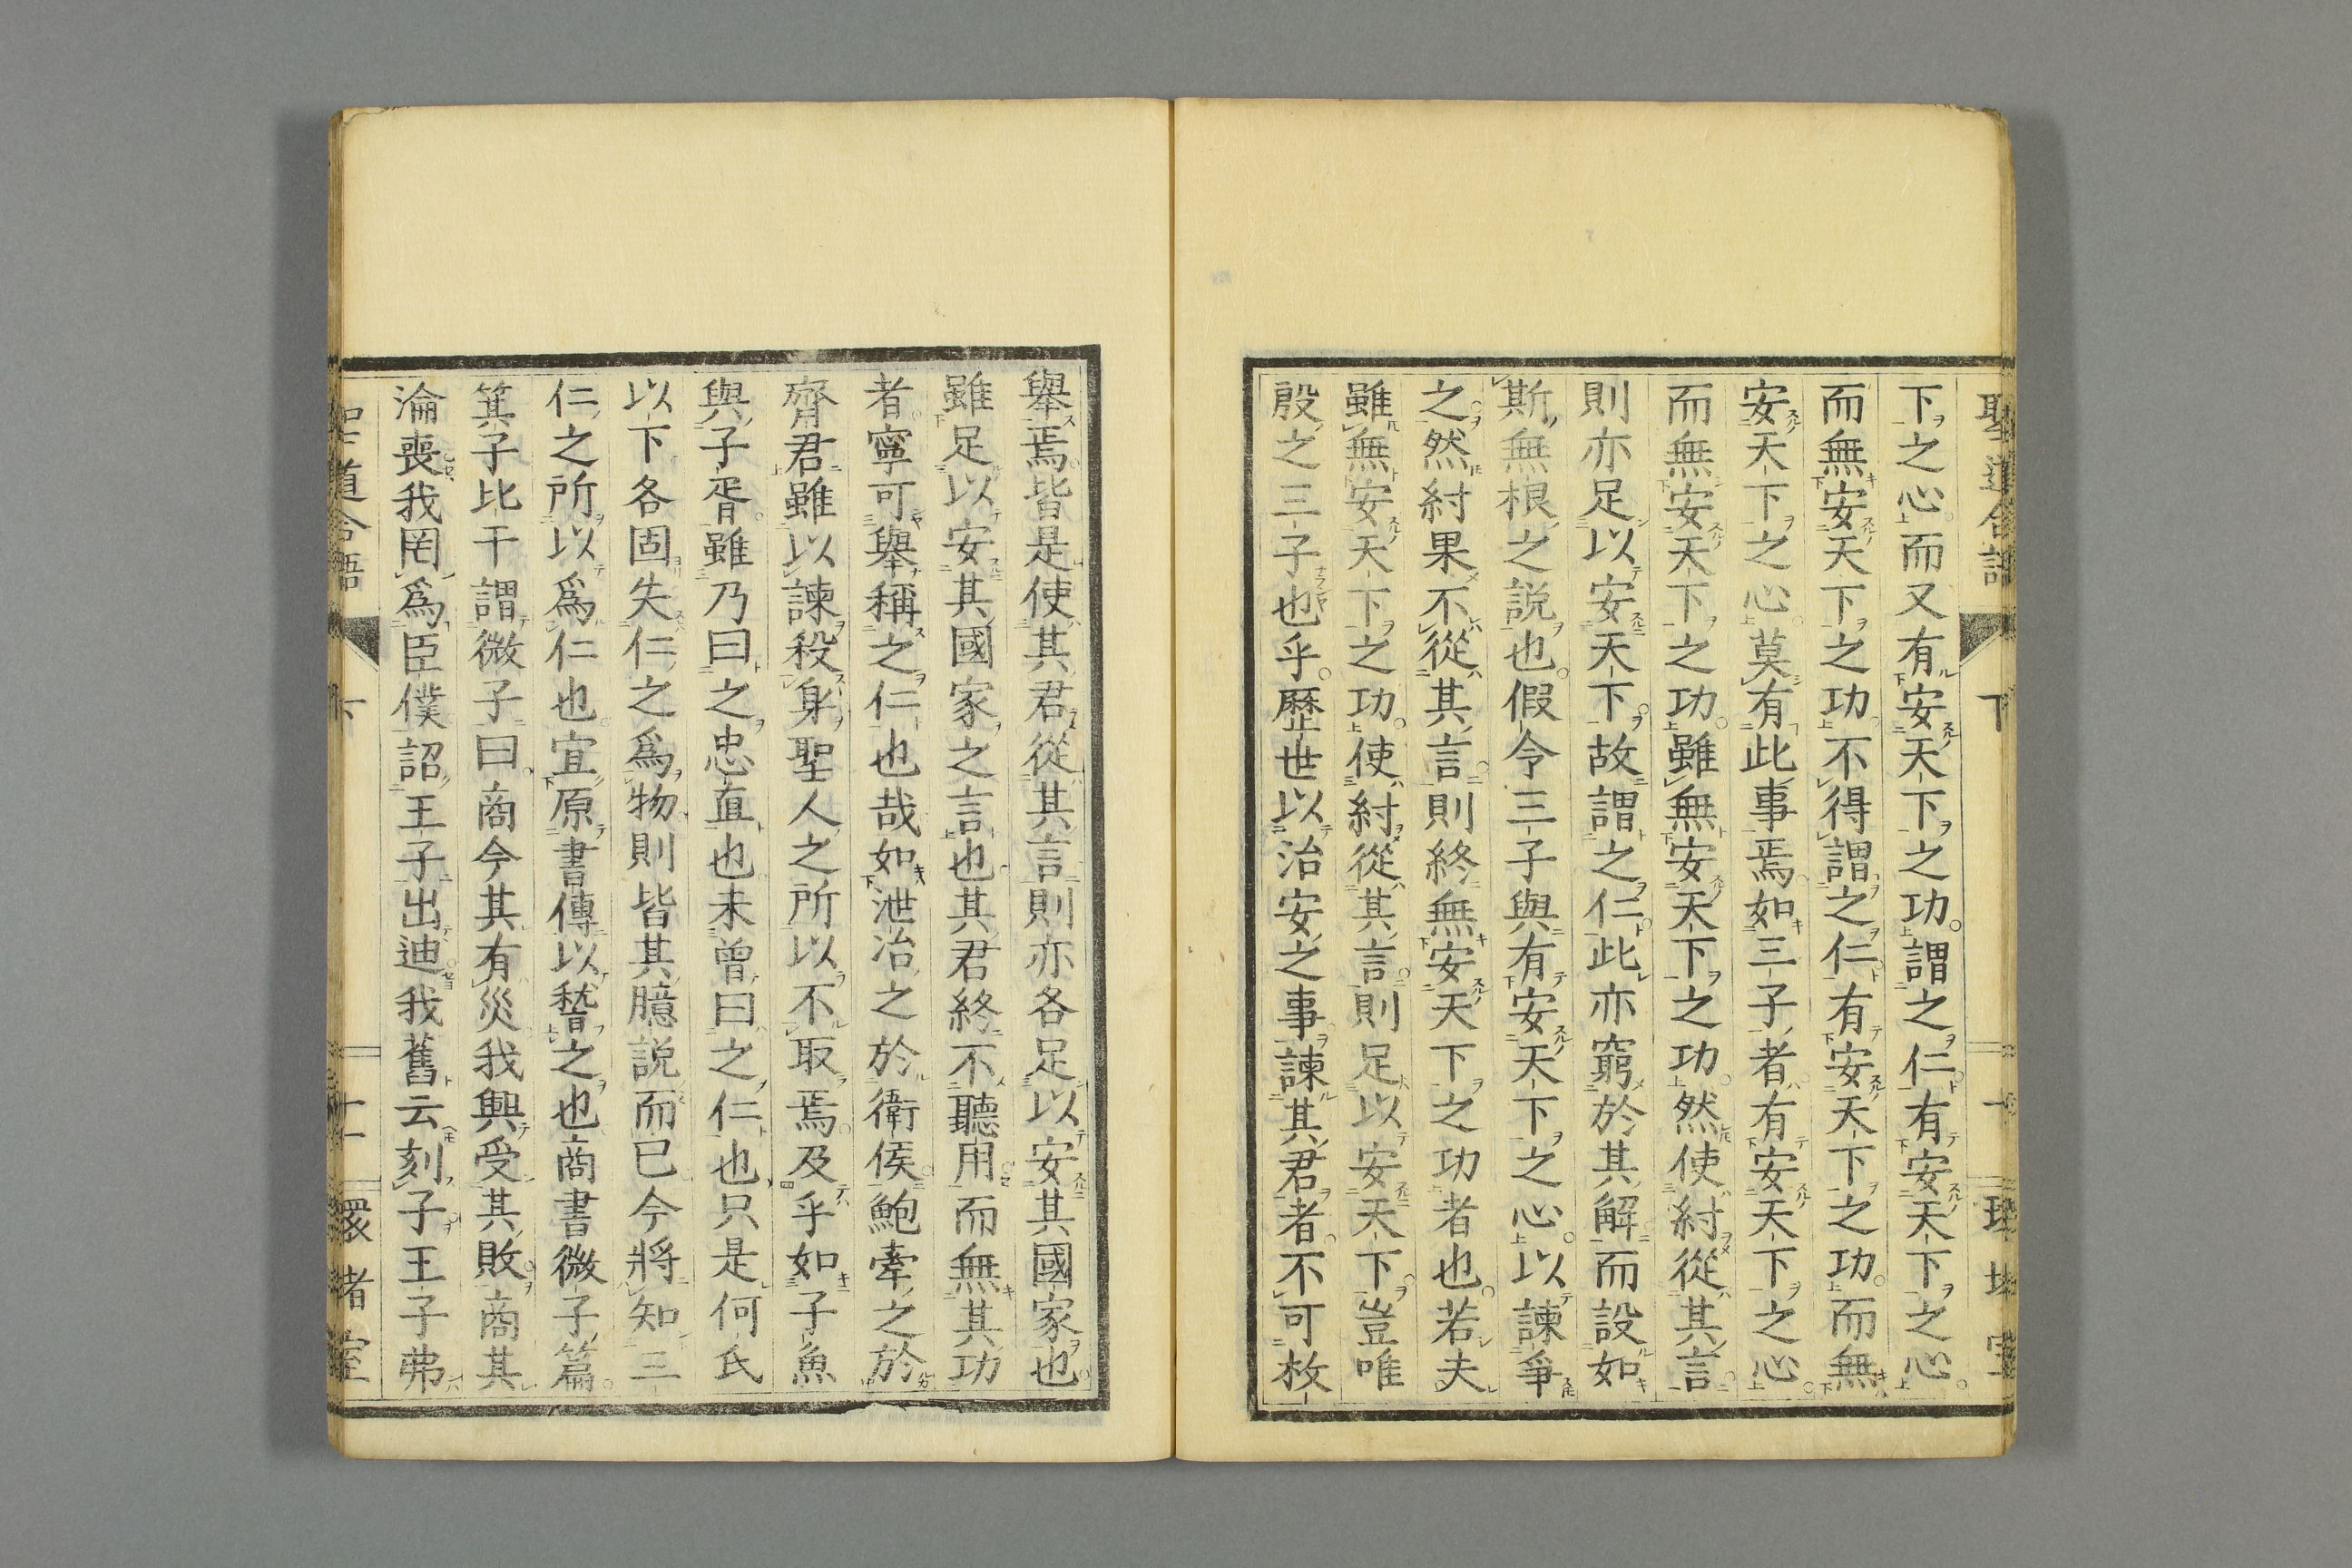 下之心而又有安天下之功謂之仁有安天下之心
而無安天下之功不得謂之仁有安天下之功而無
安天下之心莫有此事焉如三子者有安天下之心
而無安天下之功雖無安天下之功然使紂從其言
則亦足以安天下故謂之仁此亦窮於其解而設如
斯無根之説也假令三子與有安天下之心以諫爭
之然紂果不從其言則終無安天下之功者也若夫
雖無安天下之功使紂從其言則足以安天下豈唯
殷之三子也乎歷世以治安之事諫其君者不可枚
舉焉皆是使其君從其言則亦各足以安其國家也
雖足以安其國家之言也其君終不聽用而無其功
者寧可舉稱之仁也哉如泄冶之於衛侯鮑牽之於
齊君雖以諫殺身聖人之所以不取焉及乎如子魚
與子胥雖乃曰之忠直也未曾曰之仁也只是何氏
以下各固失仁之爲物則皆其臆説而已今將知三
仁之所以爲仁也宜原書傳以稽之也商書微子篇
箕子比干謂微子曰商今其有災我興受其敗商其
淪喪我罔爲臣僕詔王子出迪我舊云刻子王子弗
聖道合語 下 十一 環堵室